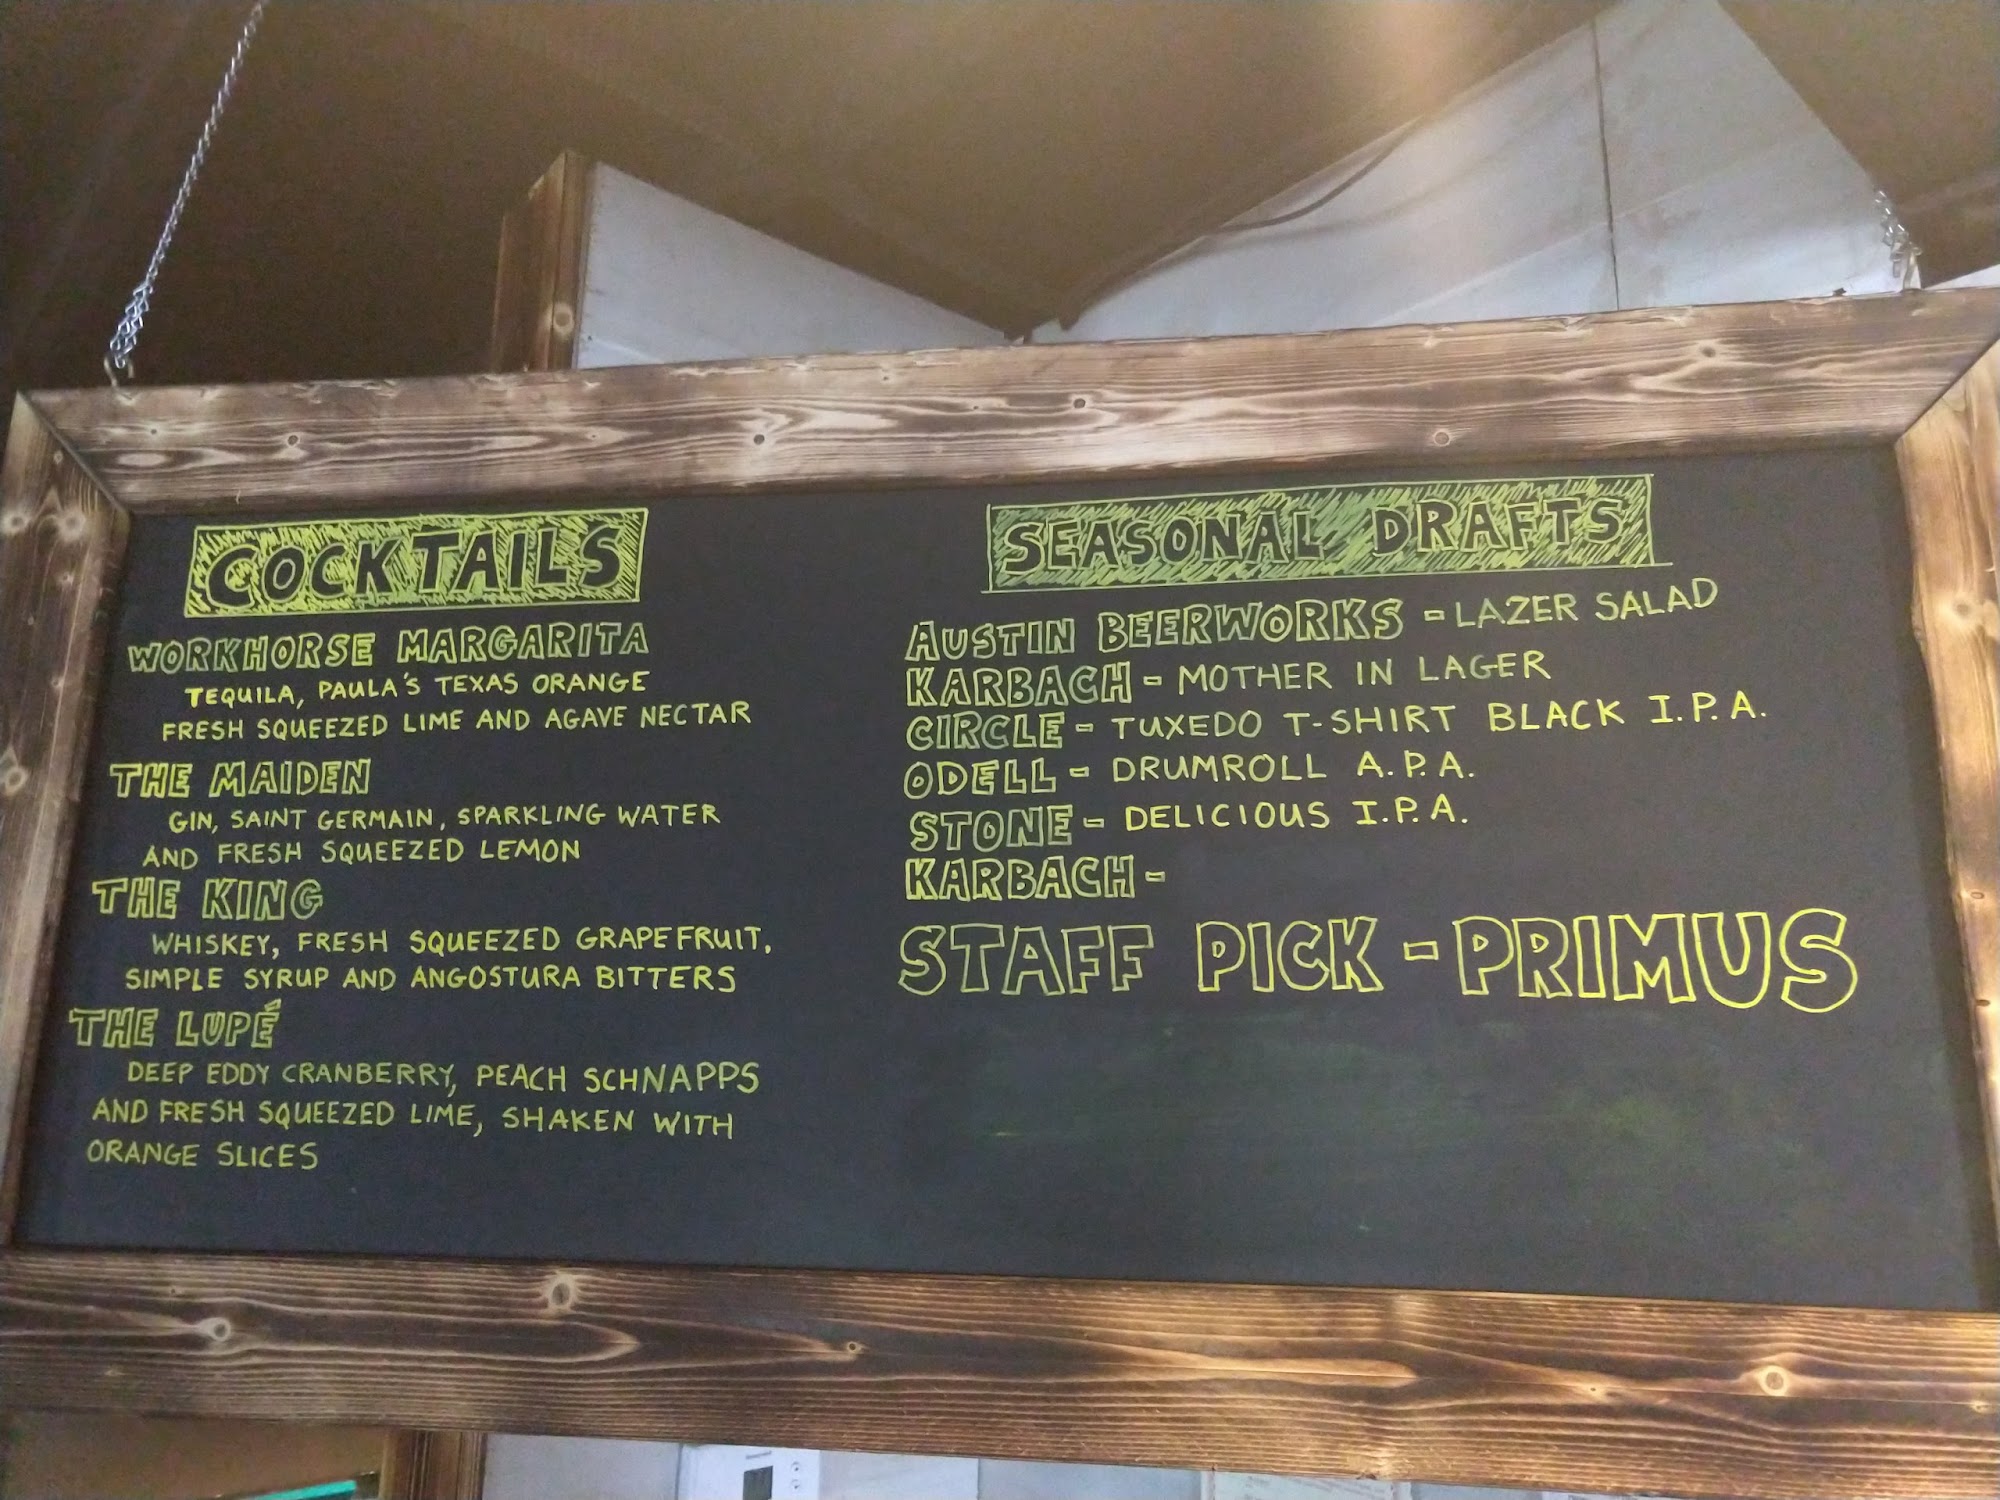 COCKTAILS
WORKHORSE MARGARITA
TEQUILA, PAULA'S TEXAS ORANGE
FRESH SQUEEZED LIME AND AGAVE NECTAR
THE MAIDEN
GIN, SAINT GERMAIN, SPARKLING WATER
AND FRESH SQUEEZED LEMON
THE KING
WHISKEY, FRESH SQUEEZED GRAPEFRUIT,
SIMPLE SYRUP AND ANGOSTURA BITTERS
THE LUPÉ
DEEP EDDY CRANBERRY, PEACH SCHNAPPS
AND FRESH SQUEEZED LIME, SHAKEN WITH
ORANGE SLICES
SEASONAL DRAFTS
AUSTIN BEERWORKS - LAZER SALAD
KARBACH - MOTHER IN LAGER
CIRCLE - TUXEDO T-SHIRT BLACK I.P.A.
ODELL - DRUMROLL A.P.A.
STONE - DELICIOUS I.P.A.
KARBACH -
STAFF PICK - PRIMUS